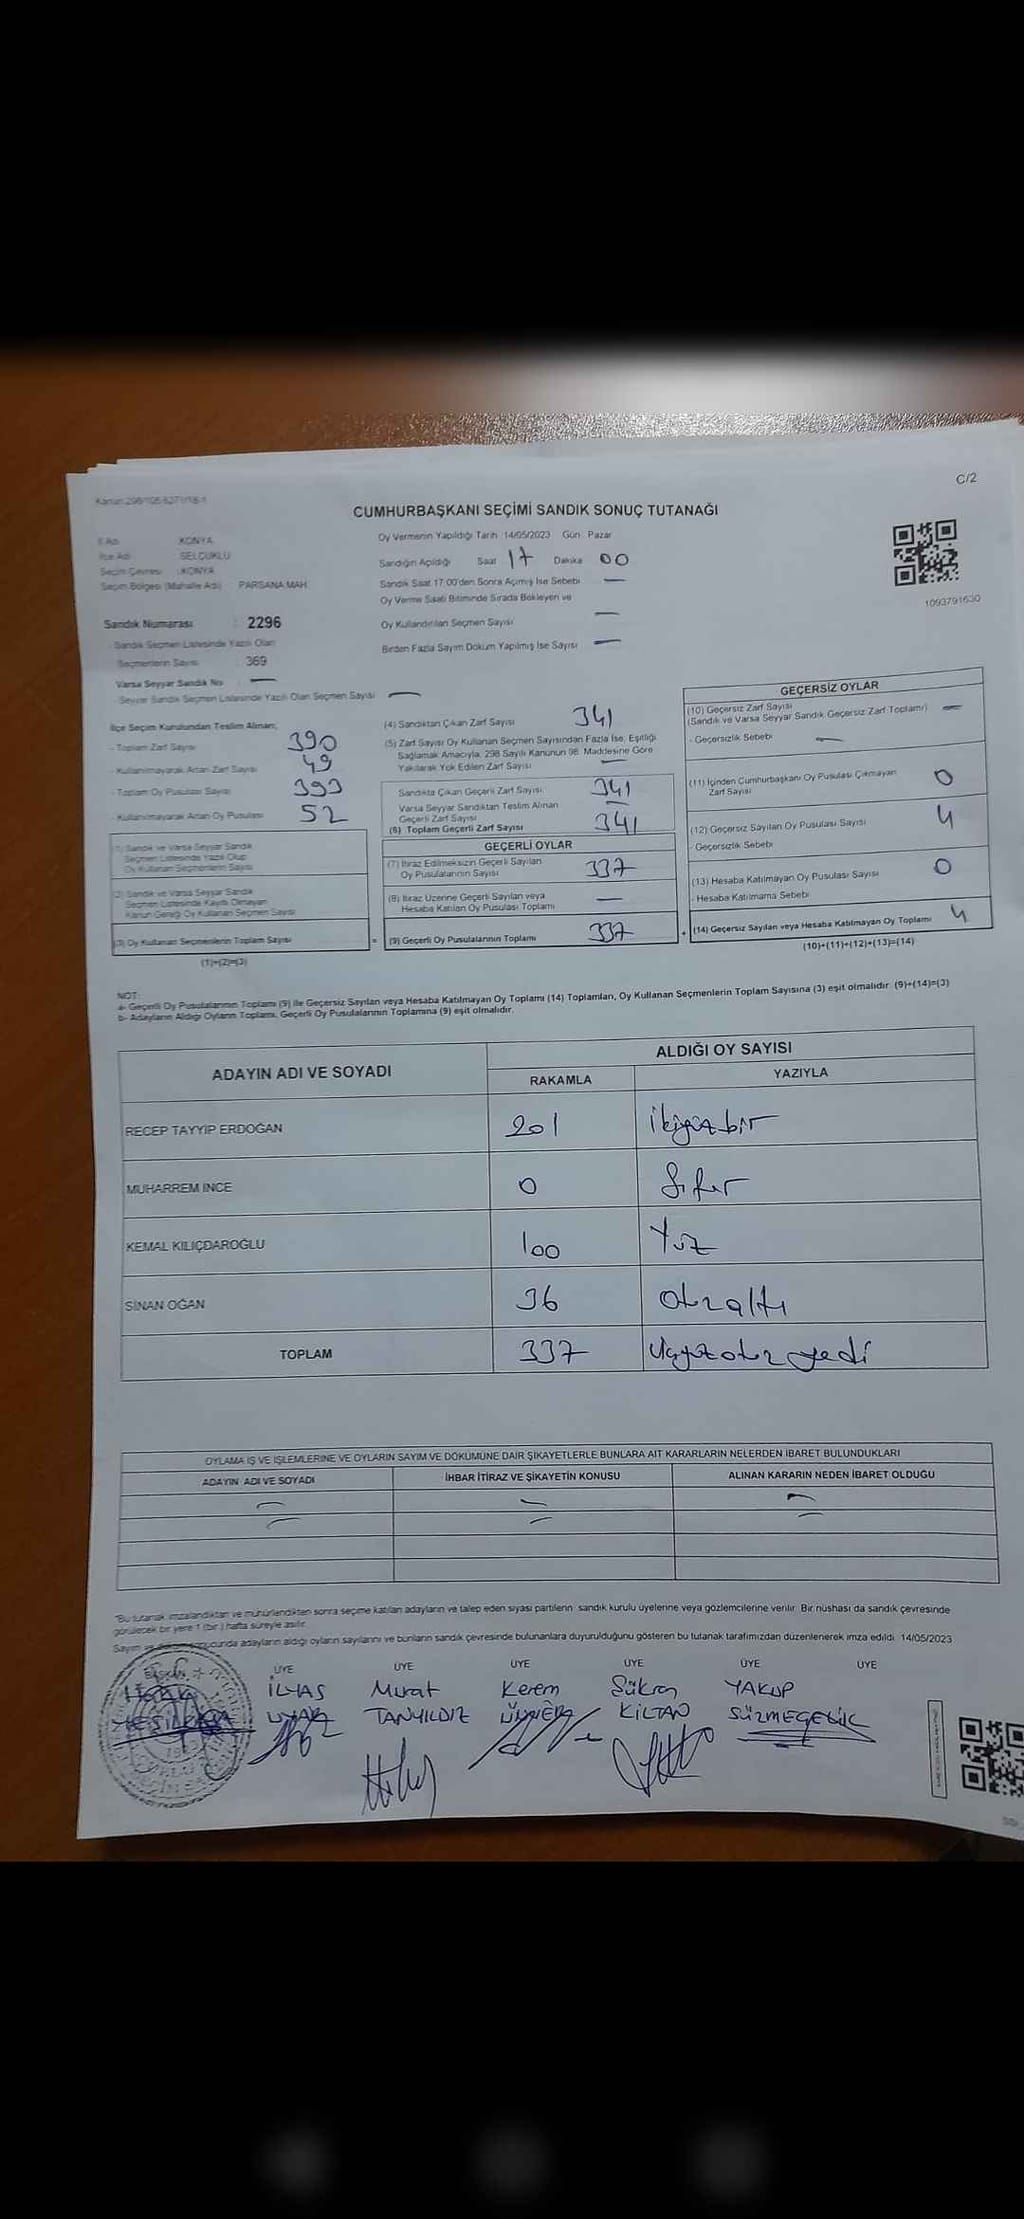 C/2
Kanun:298/105-6271/18-1
CUMHURBAŞKANI SEÇİMİ SANDIK SONUÇ TUTANAĞI
İl Adı KONYA
İlçe Adı SELÇUKLU
Seçim Çevresi :KONYA
Seçim Bölgesi (Mahalle Adı) PARSANA MAH.
Sandık Numarası : 2296
- Sandık Seçmen Listesinde Yazılı Olan
Seçmenlerin Sayısı : 369
Varsa Seyyar Sandık No —
- Seyyar Sandık Seçmen Listesinde Yazılı Olan Seçmen Sayısı —
Oy Vermenin Yapıldığı Tarih: 14/05/2023 Gün: Pazar
Sandığın Açıldığı Saat 17 Dakika 00
Sandık Saat 17:00'den Sonra Açılmış İse Sebebi —
Oy Verme Saati Bitiminde Sırada Bekleyen ve
Oy Kullandırılan Seçmen Sayısı —
Birden Fazla Sayım Döküm Yapılmış İse Sayısı —
1093791630
İlçe Seçim Kurulundan Teslim Alınan;
- Toplam Zarf Sayısı 390
- Kullanılmayarak Artan Zarf Sayısı 49
- Toplam Oy Pusulası Sayısı 393
- Kullanılmayarak Artan Oy Pusulası 52
(1) Sandık ve Varsa Seyyar Sandık
Seçmen Listesinde Yazılı Olup
Oy Kullanan Seçmenlerin Sayısı
(2) Sandık ve Varsa Seyyar Sandık
Seçmen Listesinde Kayıtlı Olmayan
Kanun Gereği Oy Kullanan Seçmen Sayısı
(3) Oy Kullanan Seçmenlerin Toplam Sayısı
(1)+(2)=(3)
(4) Sandıktan Çıkan Zarf Sayısı 341
(5) Zarf Sayısı Oy Kullanan Seçmen Sayısından Fazla İse, Eşitliği
Sağlamak Amacıyla, 298 Sayılı Kanunun 98. Maddesine Göre
Yakılarak Yok Edilen Zarf Sayısı —
Sandıkta Çıkan Geçerli Zarf Sayısı 341
Varsa Seyyar Sandıktan Teslim Alınan
Geçerli Zarf Sayısı —
(6) Toplam Geçerli Zarf Sayısı 341
GEÇERLİ OYLAR
(7) İtiraz Edilmeksizin Geçerli Sayılan
Oy Pusulalarının Sayısı 337
(8) İtiraz Üzerine Geçerli Sayılan veya
Hesaba Katılan Oy Pusulası Toplamı —
= (9) Geçerli Oy Pusulalarının Toplamı 337
GEÇERSİZ OYLAR
(10) Geçersiz Zarf Sayısı
(Sandık ve Varsa Seyyar Sandık Geçersiz Zarf Toplamı) —
- Geçersizlik Sebebi —
(11) İçinden Cumhurbaşkanı Oy Pusulası Çıkmayan
Zarf Sayısı 0
(12) Geçersiz Sayılan Oy Pusulası Sayısı 4
- Geçersizlik Sebebi
(13) Hesaba Katılmayan Oy Pusulası Sayısı 0
- Hesaba Katılmama Sebebi
+ (14) Geçersiz Sayılan veya Hesaba Katılmayan Oy Toplamı 4
(10)+(11)+(12)+(13)=(14)
NOT:
a- Geçerli Oy Pusulalarının Toplamı (9) ile Geçersiz Sayılan veya Hesaba Katılmayan Oy Toplamı (14) Toplamları, Oy Kullanan Seçmenlerin Toplam Sayısına (3) eşit olmalıdır. (9)+(14)=(3)
b- Adayların Aldığı Oyların Toplamı, Geçerli Oy Pusulalarının Toplamına (9) eşit olmalıdır.
ADAYIN ADI VE SOYADI ALDIĞI OY SAYISI
RAKAMLA YAZIYLA
RECEP TAYYİP ERDOĞAN 201 ikiyüzbir
MUHARREM İNCE 0 Sıfır
KEMAL KILIÇDAROĞLU 100 Yüz
SİNAN OĞAN 36 otuzaltı
TOPLAM 337 üçyüzotuzyedi
OYLAMA İŞ VE İŞLEMLERİNE VE OYLARIN SAYIM VE DÖKÜMÜNE DAİR ŞİKAYETLERLE BUNLARA AİT KARARLARIN NELERDEN İBARET BULUNDUKLARI
ADAYIN ADI VE SOYADI İHBAR İTİRAZ VE ŞİKAYETİN KONUSU ALINAN KARARIN NEDEN İBARET OLDUĞU
— — —
— — —
*Bu tutanak imzalandıktan ve mühürlendikten sonra seçime katılan adayların ve talep eden siyasi partilerin sandık kurulu üyelerine veya gözlemcilerine verilir. Bir nüshası da sandık çevresinde
görülecek bir yere 1 (bir) hafta süreyle asılır.
Sayım ve sonucunda adayların aldığı oyların sayılarını ve bunların sandık çevresinde bulunanlara duyurulduğunu gösteren bu tutanak tarafımızdan düzenlenerek imza edildi. 14/05/2023
BAŞKAN ÜYE ÜYE ÜYE ÜYE ÜYE ÜYE
İLYAS Murat Kerem Şükran YAKUP
UYAR TANYILDIZ KILTAN SÜZMEÇELİK